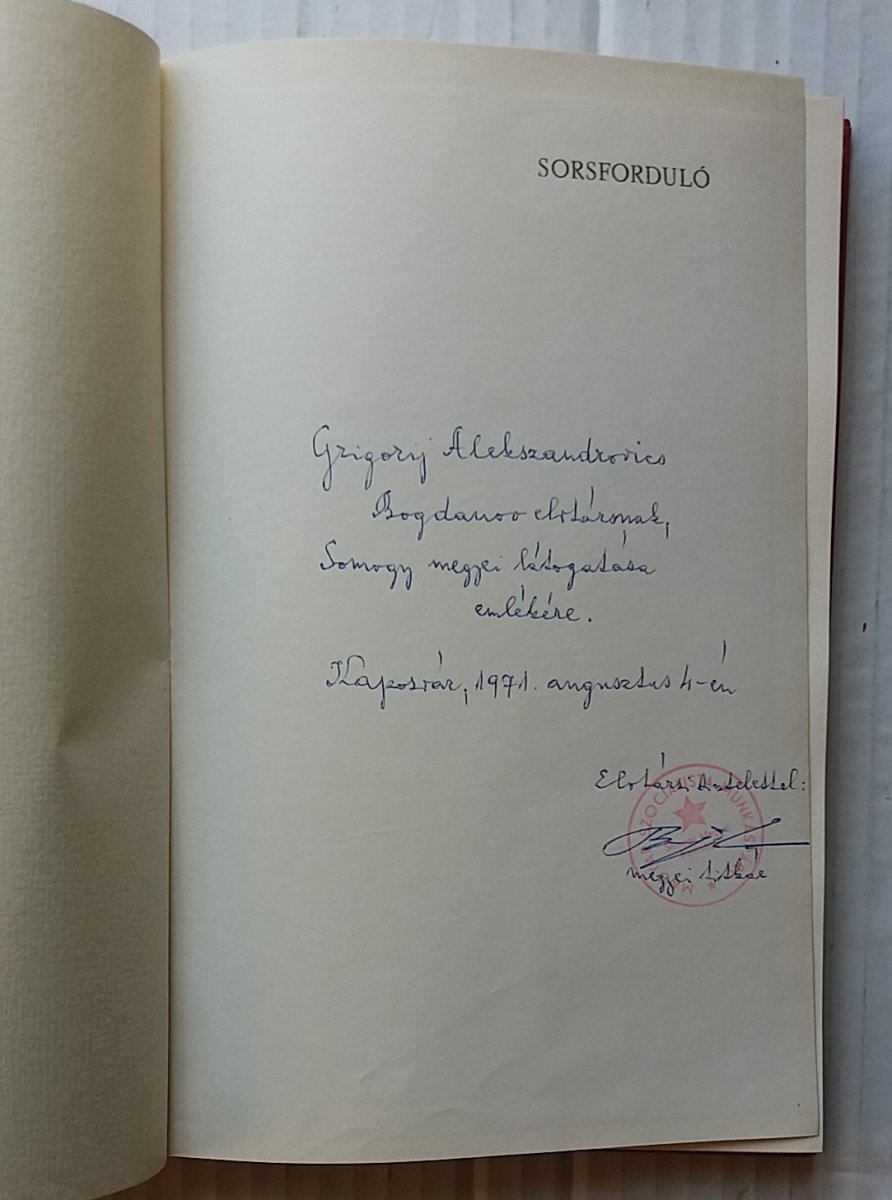 SORSFORDULÓ
Grigorij Alekszandrovics
Bogdanov elvtársnak,
Somogy megyei látogatása
emlékére.
Kaposvár, 1971. augusztus 4-én
Elvtársi tisztelettel:
megyei titkár
MAGYAR SZOCIALISTA MUNKÁSPÁRT